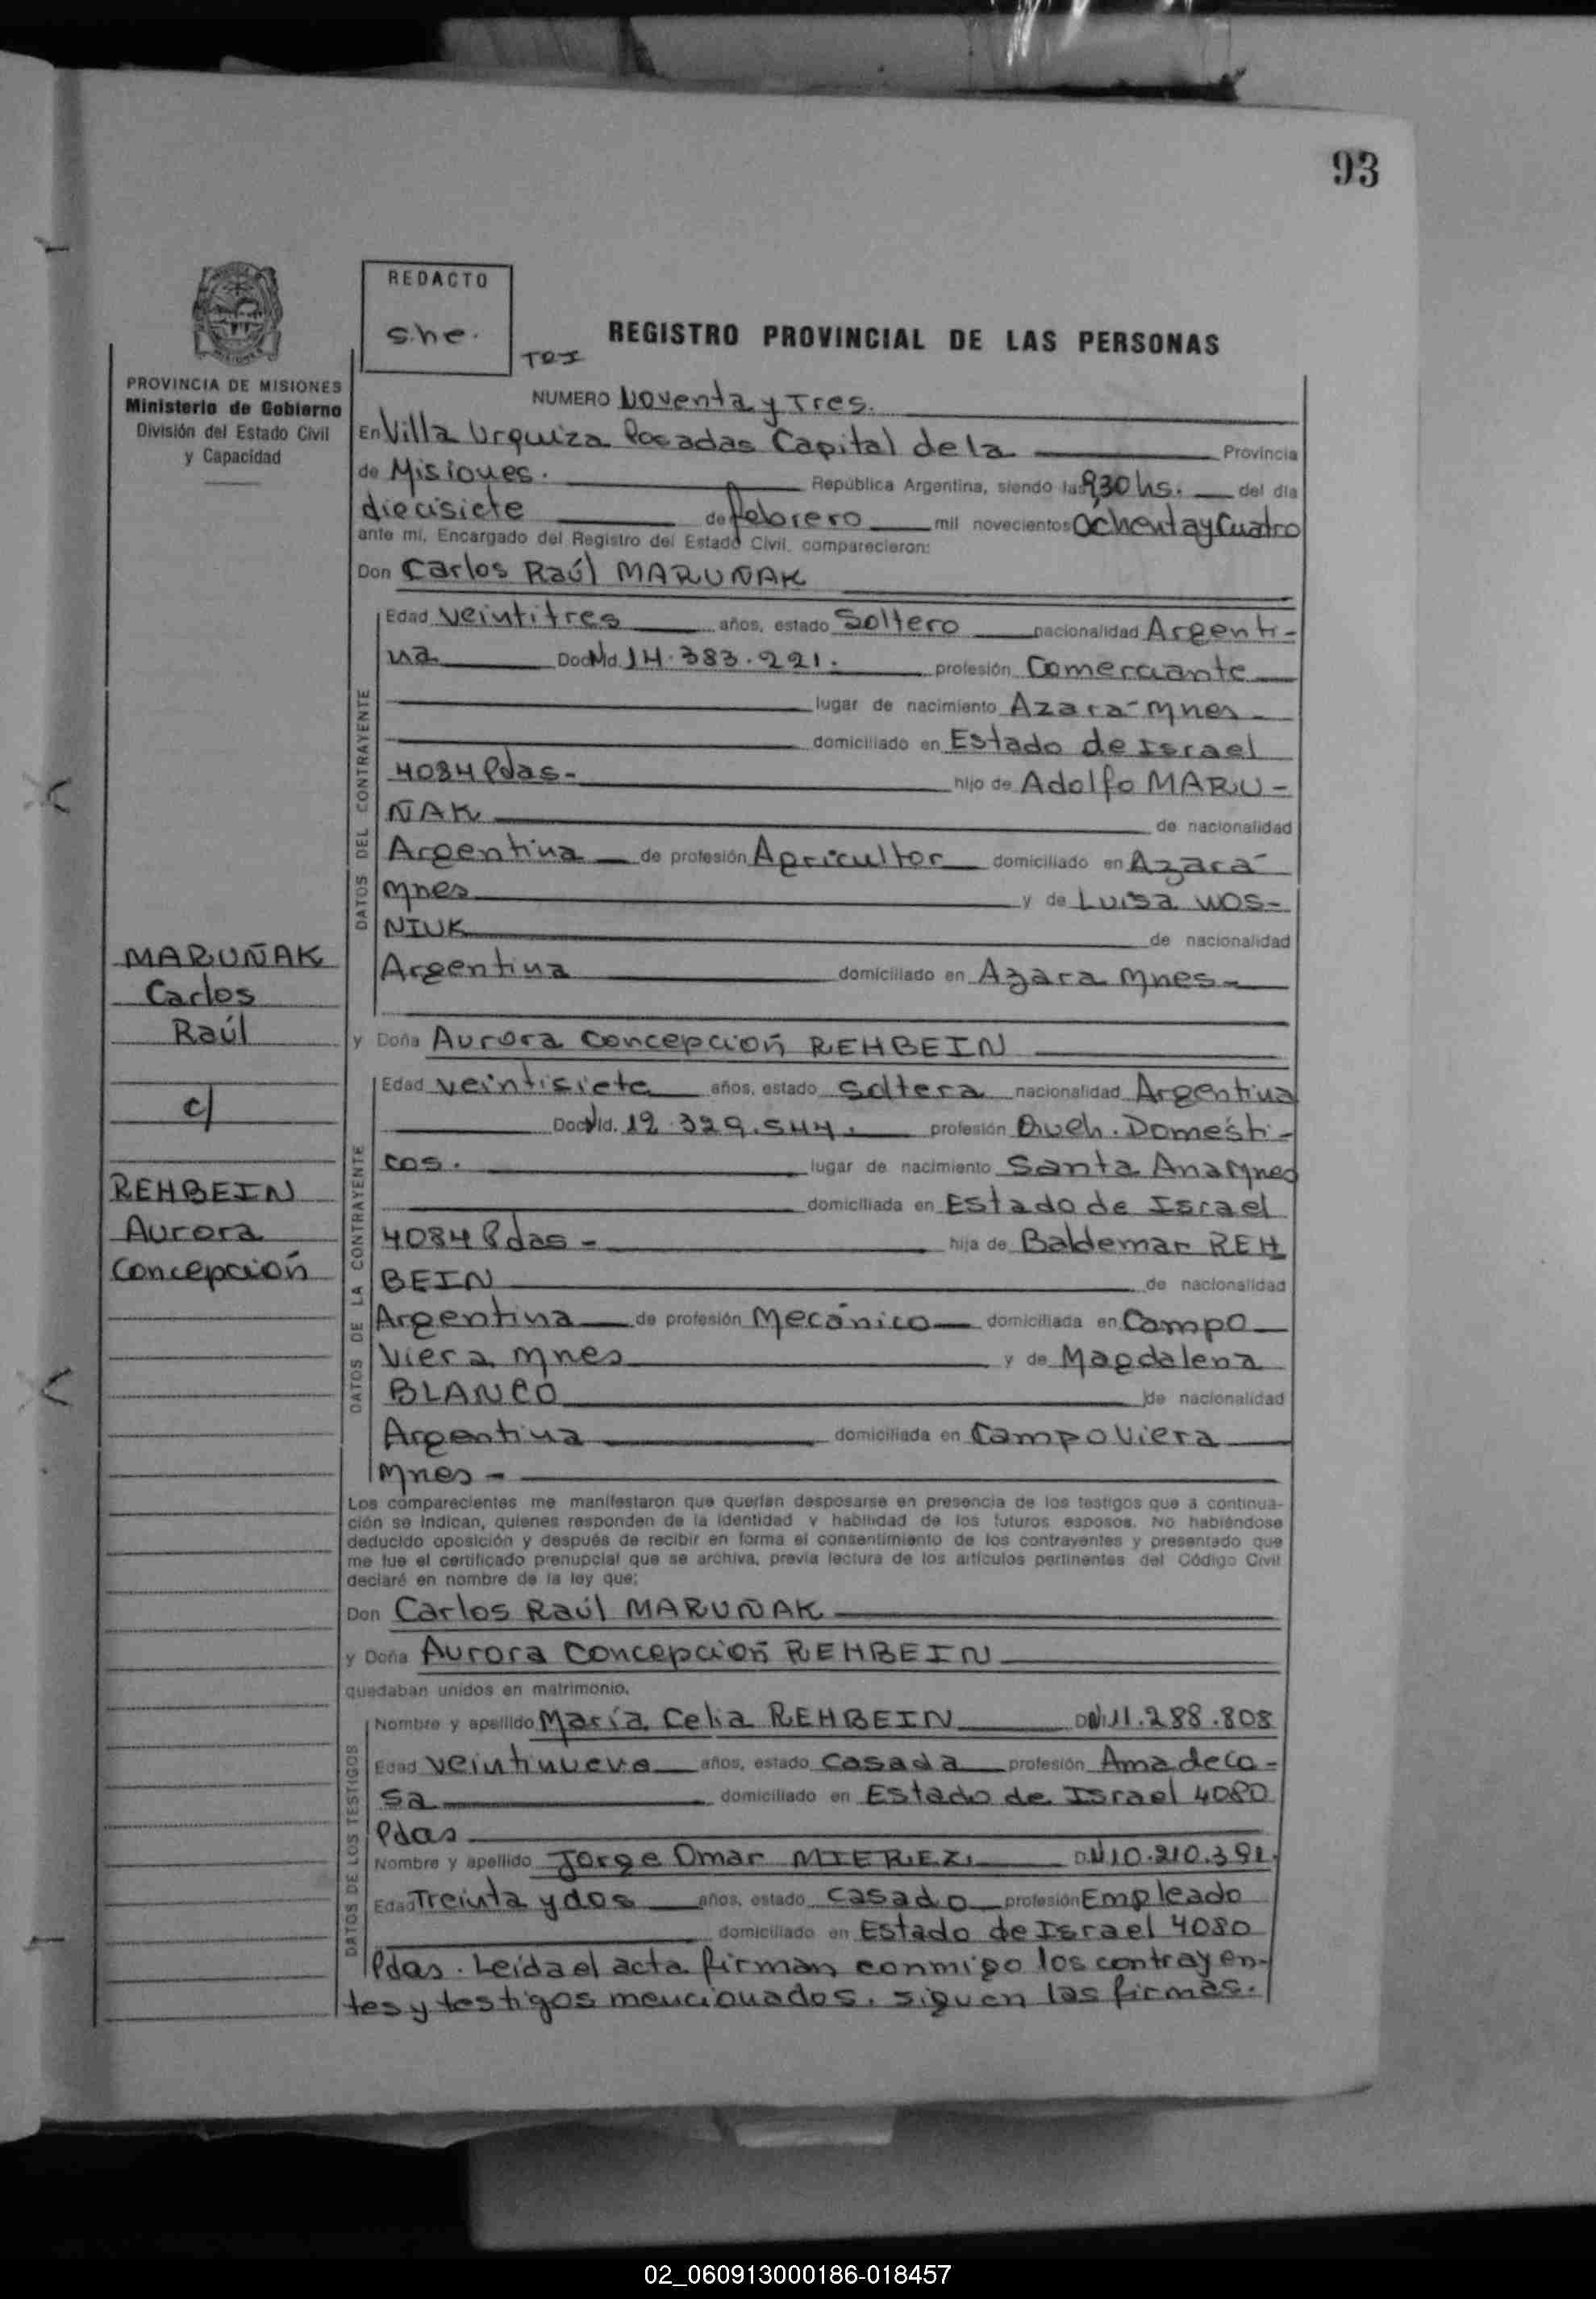 93
REDACTO
s.he.
TOI
REGISTRO PROVINCIAL DE LAS PERSONAS
PROVINCIA DE MISIONES
Ministerio de Gobierno
División del Estado Civil
y Capacidad
NUMERO Noventa y Tres.
En Villa Urquiza Posadas Capital de la Provincia
de Misiones. República Argentina, siendo las 9,30 hs. del día
diecisiete de febrero mil novecientos Ochenta y Cuatro
ante mí, Encargado del Registro del Estado Civil, comparecieron:
Don Carlos Raúl MARUÑAK
DATOS DEL CONTRAYENTE
Edad veintitres años, estado Soltero nacionalidad Argenti-
na Doc.Nid. 14.383.221. profesión Comerciante
lugar de nacimiento Azara-Mnes-
domiciliado en Estado de Israel
4084 Pdas- hijo de Adolfo MARU-
ÑAK de nacionalidad
Argentina de profesión Agricultor domiciliado en Azara-
Mnes y de Luisa WOS-
NIUK de nacionalidad
Argentina domiciliado en Azara Mnes-
MARUÑAK
Carlos
Raúl
c/
REHBEIN
Aurora
Concepción
y Doña Aurora Concepción REHBEIN
DATOS DE LA CONTRAYENTE
Edad veintisiete años, estado Soltera nacionalidad Argentina
Doc.Nid. 12.329.544. profesión Queh. Domésti-
cos. lugar de nacimiento Santa Ana Mnes
domiciliada en Estado de Israel
4084 Pdas- hija de Baldemar REH
BEIN de nacionalidad
Argentina de profesión Mecánico domiciliada en Campo
Viera Mnes y de Magdalena
BLANCO de nacionalidad
Argentina domiciliada en Campo Viera
Mnes-
Los comparecientes me manifestaron que querían desposarse en presencia de los testigos que a continua-
ción se indican, quienes responden de la identidad y habilidad de los futuros esposos. No habiéndose
deducido oposición y después de recibir en forma el consentimiento de los contrayentes y presentado que
me fue el certificado prenupcial que se archiva, previa lectura de los artículos pertinentes del Código Civil
declaré en nombre de la ley que:
Don Carlos Raúl MARUÑAK
y Doña Aurora Concepción REHBEIN
quedaban unidos en matrimonio.
DATOS DE LOS TESTIGOS
Nombre y apellido María Celia REHBEIN DNI 11.288.808
Edad veintinueve años, estado Casada profesión Ama de ca-
sa domiciliado en Estado de Israel 4080
Pdas
Nombre y apellido Jorge Omar MIEREZ DNI 10.210.391.
Edad Treinta y dos años, estado Casado profesión Empleado
domiciliado en Estado de Israel 4080
Pdas. Leída el acta firman conmigo los contrayen-
tes y testigos mencionados. siguen las firmas.
02_060913000186-018457